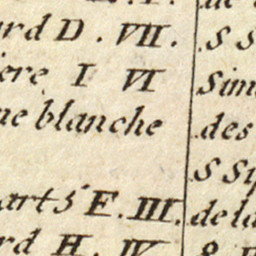 rd D. VII.
ere I VI
ne blanche
arts E. III.
rd H. IV
S S
Sim
des
S Sp
de la